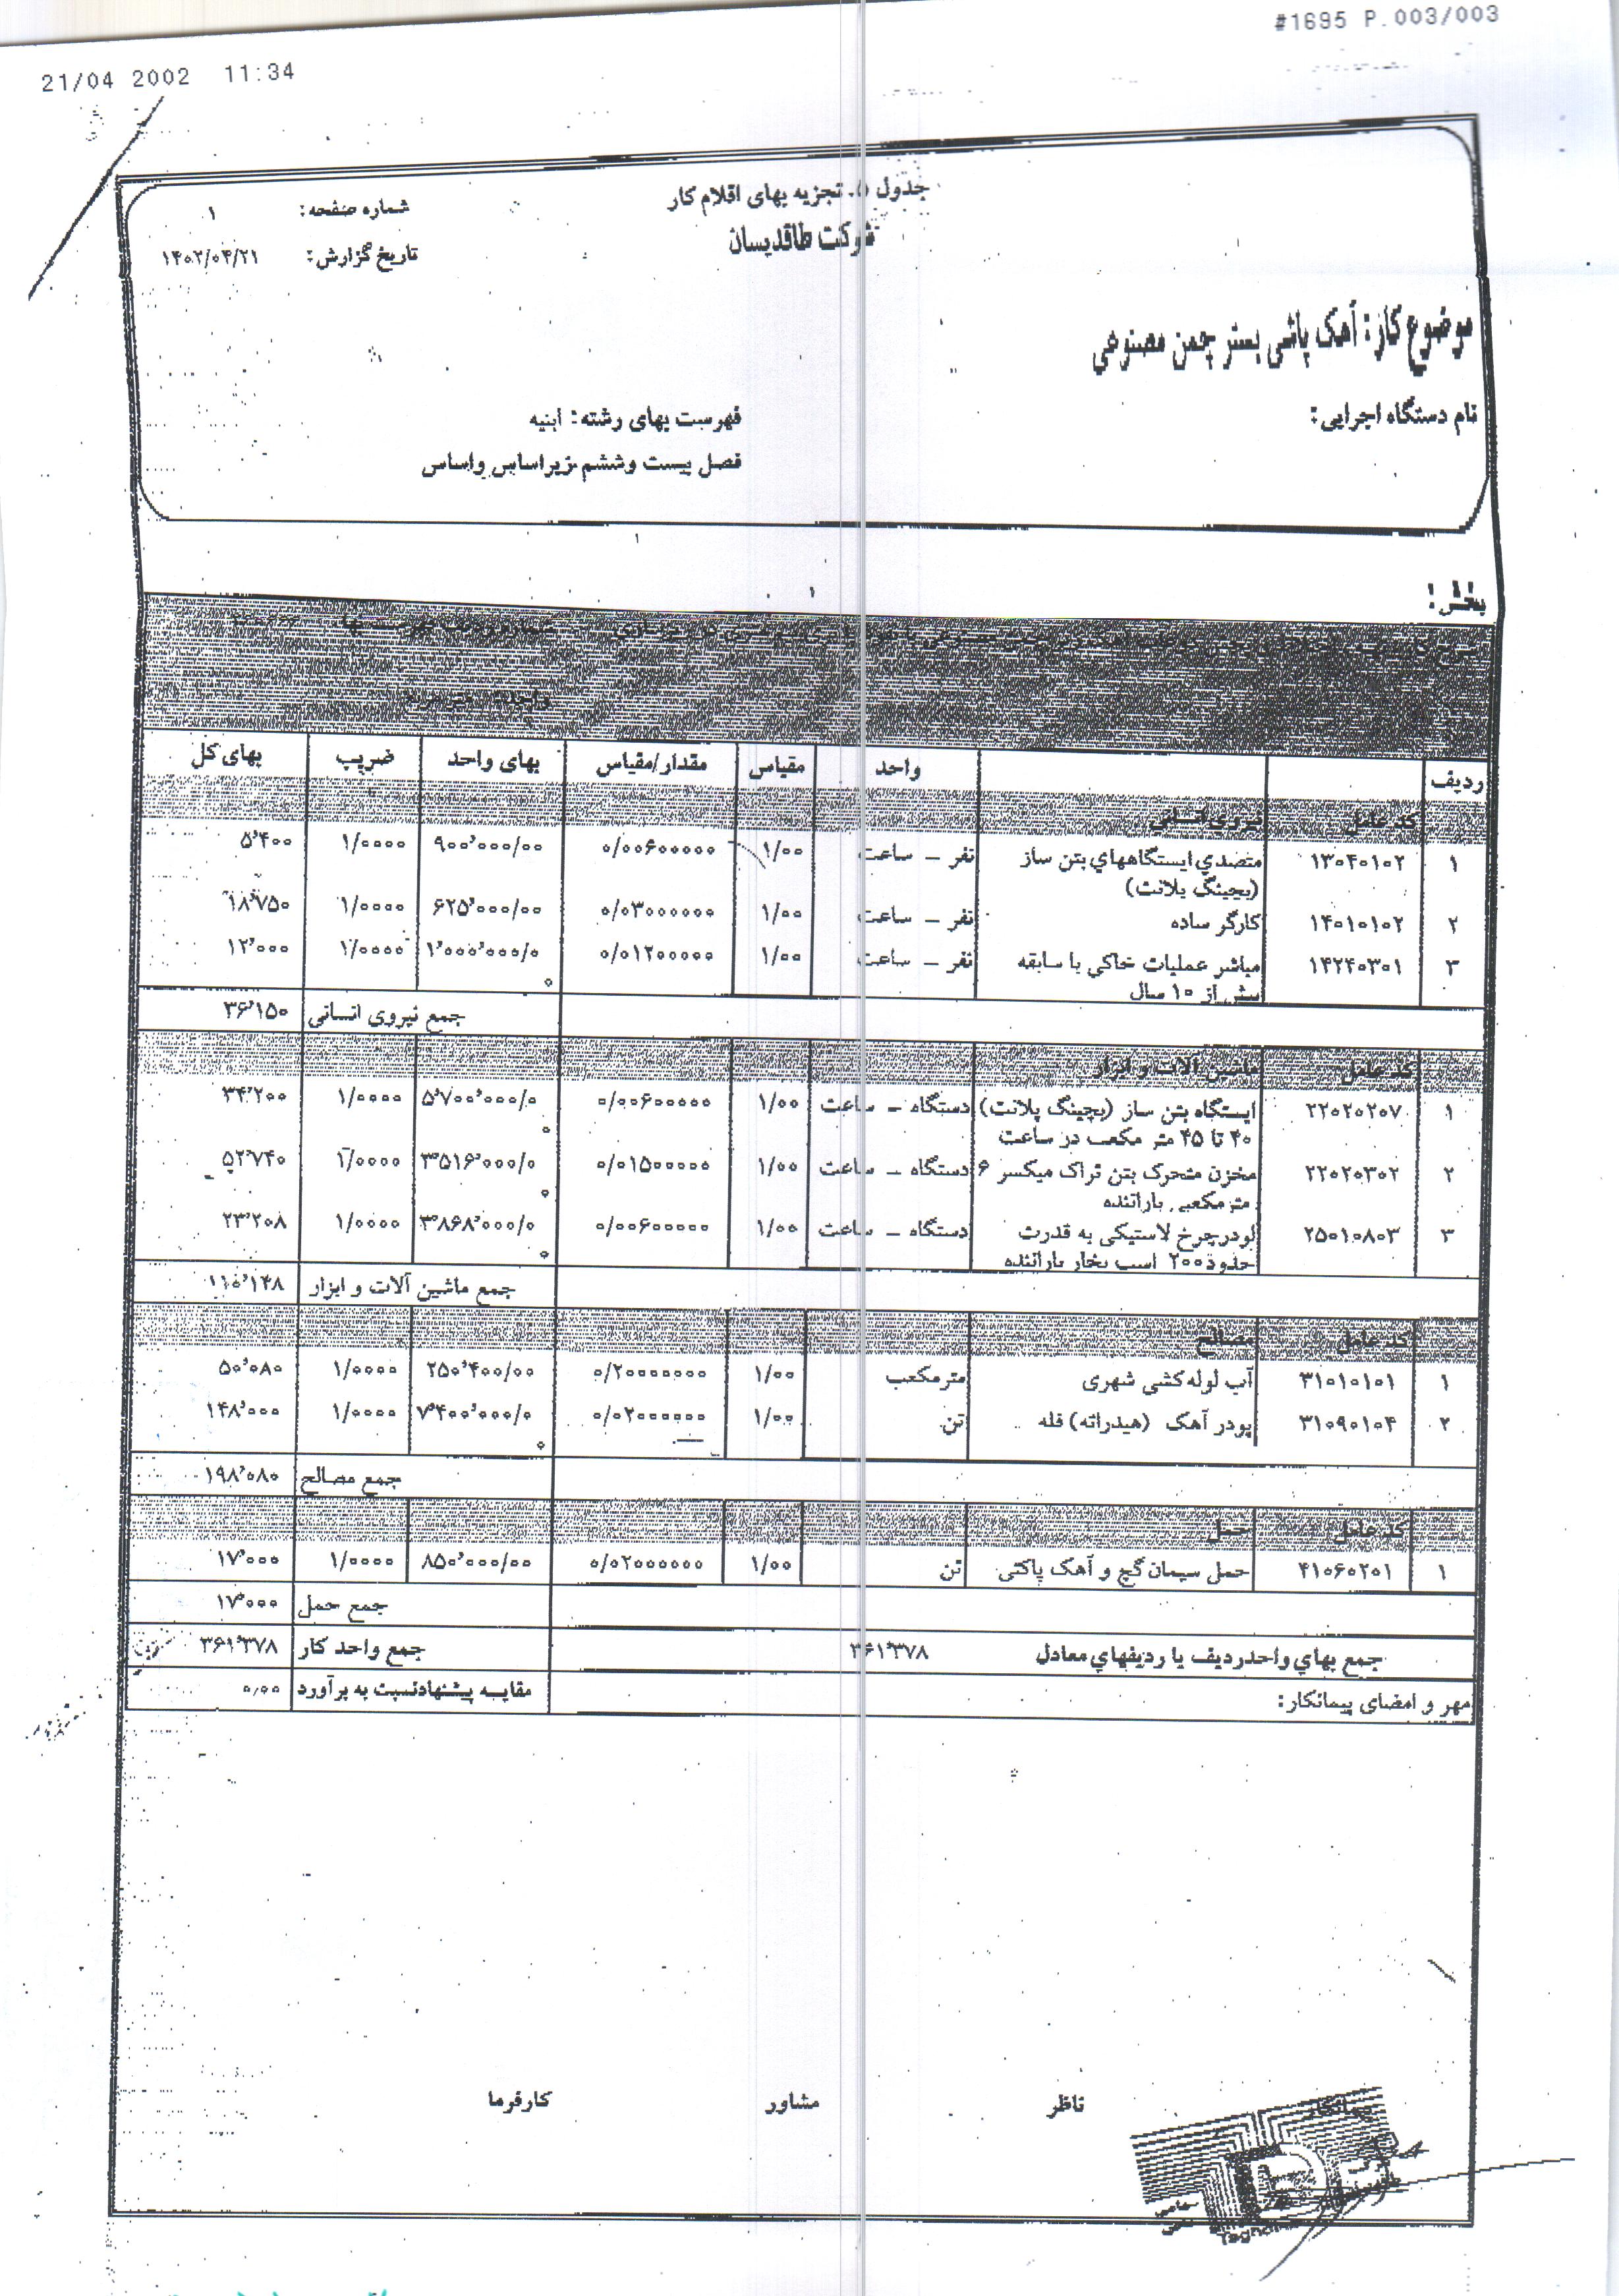 #1695 P.003/003
21/04 2002 11:34
جدول ۵. تجزیه بهای اقلام کار
شرکت طاقدیسان
شماره صفحه: ۱
تاریخ گزارش: ۱۴۰۲/۰۴/۲۱
موضوع کار: آهک پاشی بستر چمن مصنوعی
نام دستگاه اجرایی:
فهرست بهای رشته: ابنیه
فصل بیست وششم.زیراساس واساس
بخش:
ردیف واحد مقیاس مقدار/مقیاس بهای واحد ضریب بهای کل
کد عامل نیروی انسانی
۱ ۱۳۰۴۰۱۰۲ متصدي ایستگاههاي بتن ساز نفر - ساعت ۱/۰۰ ۰/۰۰۶۰۰۰۰۰ ۹۰۰٬۰۰۰/۰۰ ۱/۰۰۰۰ ۵٬۴۰۰
(بچینگ پلانت)
۲ ۱۴۰۱۰۱۰۲ کارگر ساده نفر - ساعت ۱/۰۰ ۰/۰۳۰۰۰۰۰۰ ۶۲۵٬۰۰۰/۰۰ ۱/۰۰۰۰ ۱۸٬۷۵۰
۳ ۱۴۲۴۰۳۰۱ مباشر عملیات خاکي با سابقه نفر - ساعت ۱/۰۰ ۰/۰۱۲۰۰۰۰۰ ۱٬۰۰۰٬۰۰۰/۰ ۱/۰۰۰۰ ۱۲٬۰۰۰
بیش از ۱۰ سال ۰
جمع نیروی انسانی ۳۶٬۱۵۰
کد عامل ماشین آلات و ابزار
۱ ۲۲۰۲۰۲۰۷ ایستگاه بتن ساز (بچینگ پلانت) دستگاه - ساعت ۱/۰۰ ۰/۰۰۶۰۰۰۰۰ ۵٬۷۰۰٬۰۰۰/۰ ۱/۰۰۰۰ ۳۴٬۲۰۰
۴۰ تا ۴۵ متر مکعب در ساعت ۰
۲ ۲۲۰۲۰۳۰۲ مخزن متحرک بتن تراک میکسر ۶ دستگاه - ساعت ۱/۰۰ ۰/۰۱۵۰۰۰۰۰ ۳٬۵۱۶٬۰۰۰/۰ ۱/۰۰۰۰ ۵۲٬۷۴۰
مترمکعبی باراننده ۰
۳ ۲۵۰۱۰۸۰۳ لودرچرخ لاستیکی به قدرت دستگاه - ساعت ۱/۰۰ ۰/۰۰۶۰۰۰۰۰ ۳٬۸۶۸٬۰۰۰/۰ ۱/۰۰۰۰ ۲۳٬۲۰۸
حدود۲۰۰ اسب بخار باراننده ۰
جمع ماشین آلات و ابزار ۱۱۰٬۱۴۸
کد عامل مصالح
۱ ۳۱۰۱۰۱۰۱ آب لوله‌کشی شهری مترمکعب ۱/۰۰ ۰/۲۰۰۰۰۰۰۰ ۲۵۰٬۴۰۰/۰۰ ۱/۰۰۰۰ ۵۰٬۰۸۰
۲ ۳۱۰۹۰۱۰۴ پودر آهک (هیدراته) فله تن ۱/۰۰ ۰/۰۲۰۰۰۰۰۰ ۷٬۴۰۰٬۰۰۰/۰ ۱/۰۰۰۰ ۱۴۸٬۰۰۰
۰
جمع مصالح ۱۹۸٬۰۸۰
کد عامل حمل
۱ ۴۱۰۶۰۲۰۱ حمل سیمان گچ و آهک پاکتی تن ۱/۰۰ ۰/۰۲۰۰۰۰۰۰ ۸۵۰٬۰۰۰/۰۰ ۱/۰۰۰۰ ۱۷٬۰۰۰
جمع حمل ۱۷٬۰۰۰
جمع بهاي واحدردیف یا ردیفهاي معادل ۳۶۱٬۳۷۸ جمع واحد کار ۳۶۱٬۳۷۸
مهر و امضای پیمانکار: مقایسه پیشنهادنسبت به برآورد ۰.۰۰
پیمانکار ناظر مشاور کارفرما